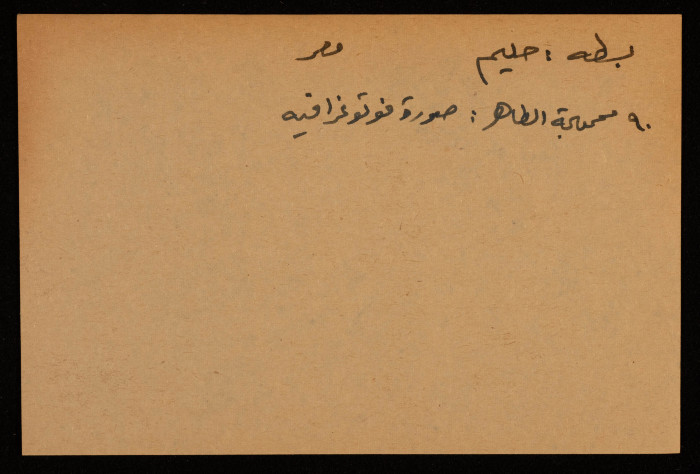 بطه : حليم مصر
٩٠ الطاهر : صورة فوتوغرافيه